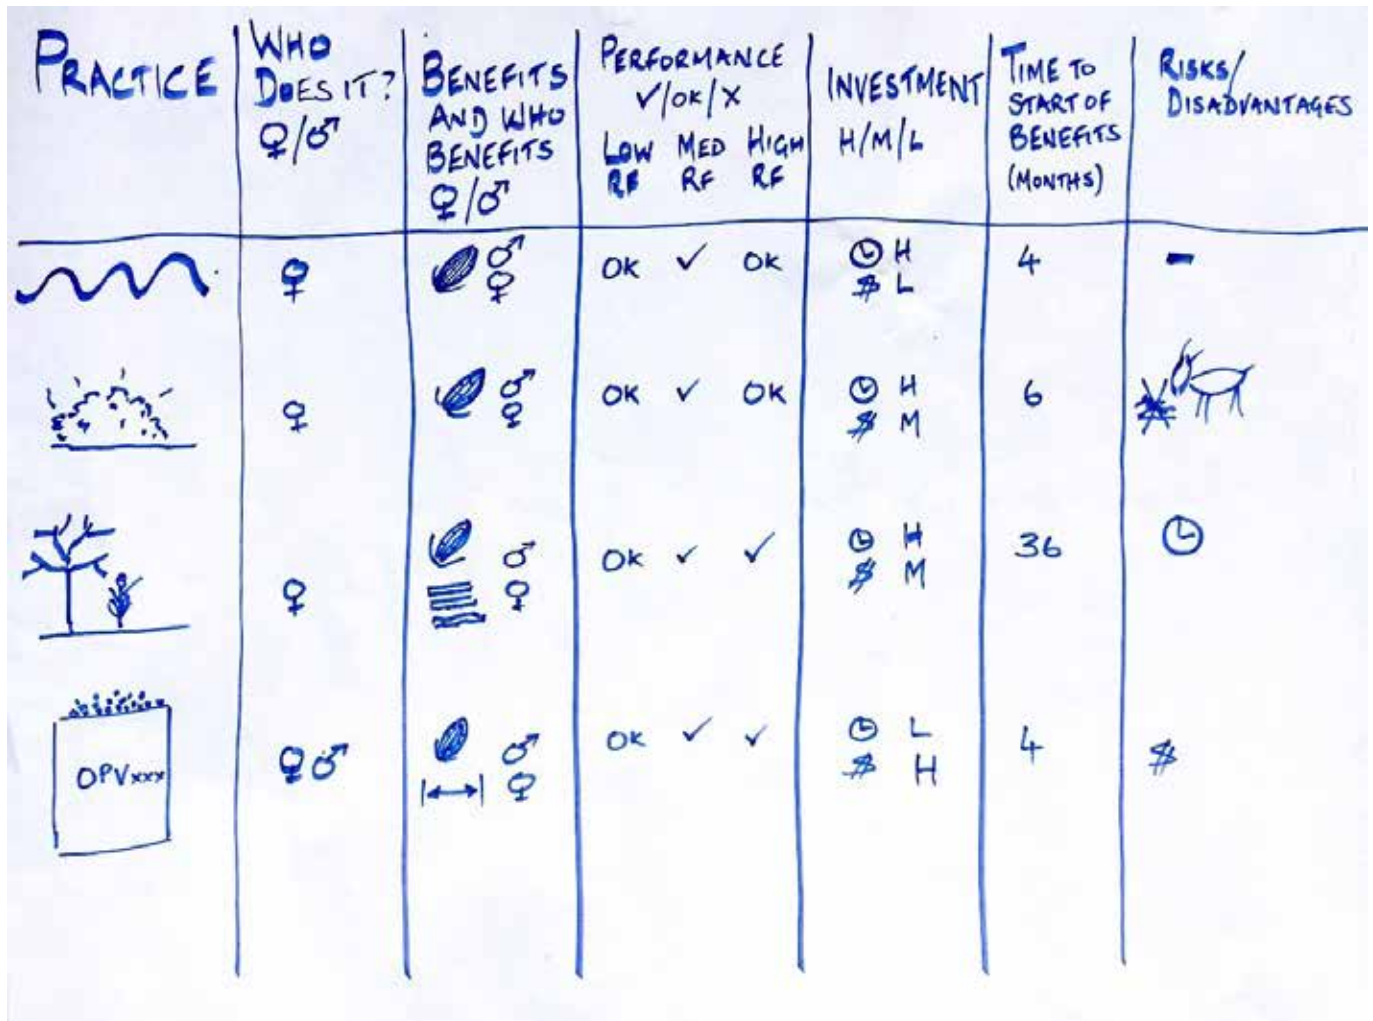 PRACTICE
WHO
DOES IT?
♀/♂
BENEFITS
AND WHO
BENEFITS
♀/♂
PERFORMANCE
✓/OK/X
LOW MED HIGH
RF RF RF
INVESTMENT
H/M/L
TIME TO
START OF
BENEFITS
(MONTHS)
RISKS/
DISADVANTAGES
♀ ♂ OK ✓ OK H 4 -
♀ $ L
♀ ♂ OK ✓ OK H 6
♀ $ M
♀ ♂ OK ✓ ✓ H 36
♀ $ M
OPVxxx ♀♂ ♂ OK ✓ ✓ L 4 $
♀ $ H